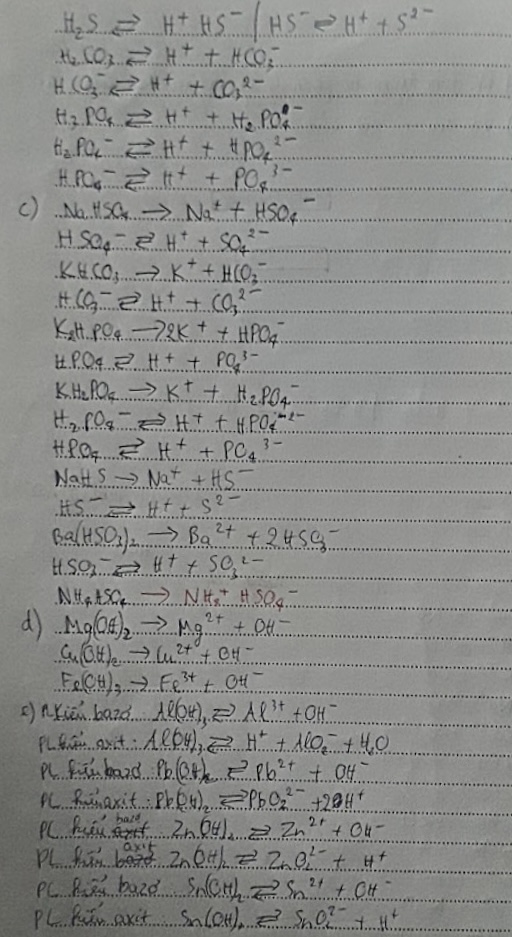 H₂S ⇌ H⁺ HS⁻ / HS⁻ ⇌ H⁺ + S²⁻
H₂CO₃ ⇌ H⁺ + HCO₃⁻
HCO₃⁻ ⇌ H⁺ + CO₃²⁻
H₃PO₄ ⇌ H⁺ + H₂PO₄⁻
H₂PO₄⁻ ⇌ H⁺ + HPO₄²⁻
HPO₄⁻ ⇌ H⁺ + PO₄³⁻
c) NaHSO₄ → Na⁺ + HSO₄⁻
HSO₄⁻ ⇌ H⁺ + SO₄²⁻
KHCO₃ → K⁺ + HCO₃⁻
HCO₃⁻ ⇌ H⁺ + CO₃²⁻
K₂HPO₄ → 2K⁺ + HPO₄⁻
HPO₄ ⇌ H⁺ + PO₄³⁻
KH₂PO₄ → K⁺ + H₂PO₄⁻
H₂PO₄⁻ ⇌ H⁺ + HPO₄²⁻
HPO₄ ⇌ H⁺ + PO₄³⁻
NaHS → Na⁺ + HS⁻
HS⁻ ⇌ H⁺ + S²⁻
Ba(HSO₃)₂ → Ba²⁺ + 2HSO₃⁻
HSO₃⁻ ⇌ H⁺ + SO₃²⁻
NH₄HSO₄ → NH₄⁺ HSO₄⁻
d) Mg(OH)₂ → Mg²⁺ + OH⁻
Cu(OH)₂ → Cu²⁺ + OH⁻
Fe(OH)₃ → Fe³⁺ + OH⁻
e) kiểu bazơ: Al(OH)₃ ⇌ Al³⁺ + OH⁻
PL kiểu axit: Al(OH)₃ ⇌ H⁺ + AlO₂⁻ + H₂O
PL kiểu bazơ: Pb(OH)₂ ⇌ Pb²⁺ + OH⁻
PL kiểu axit: Pb(OH)₂ ⇌ PbO₂²⁻ + 2H⁺
PL kiểu bazơ Zn(OH)₂ ⇌ Zn²⁺ + OH⁻
PL kiểu axit Zn(OH)₂ ⇌ ZnO₂²⁻ + H⁺
PL kiểu bazơ: Sn(OH)₂ ⇌ Sn²⁺ + OH⁻
PL kiểu axit: Sn(OH)₂ ⇌ SnO₂²⁻ + H⁺